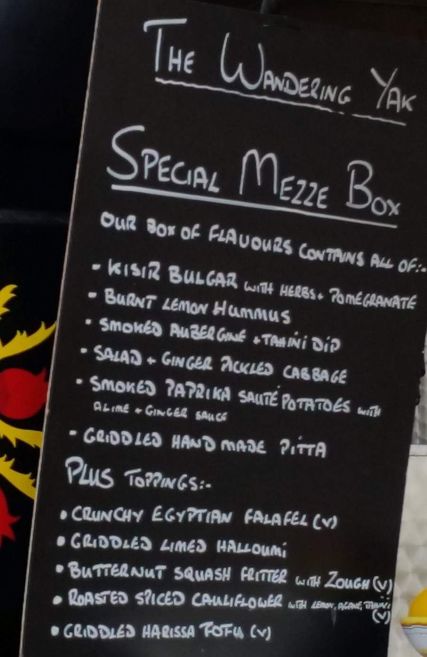 THE WANDERING YAK
SPECIAL MEZZE BOX
OUR BOX OF FLAVOURS CONTAINS ALL OF:-
- KISIR BULGAR WITH HERBS + POMEGRANATE
- BURNT LEMON HUMMUS
- SMOKED AUBERGINE + TAHINI DIP
- SALAD + GINGER PICKLED CABBAGE
- SMOKED PAPRIKA SAUTÉ POTATOES WITH
A LIME + GINGER SAUCE
- GRIDDLED HAND MADE PITTA
PLUS TOPPINGS:-
• CRUNCHY EGYPTIAN FALAFEL (V)
• GRIDDLED LIMED HALLOUMI
• BUTTERNUT SQUASH FRITTER WITH ZOUGH (V)
• ROASTED SPICED CAULIFLOWER WITH LEMON, AGAVE, TAHINI
(V)
• GRIDDLED HARISSA TOFU (V)